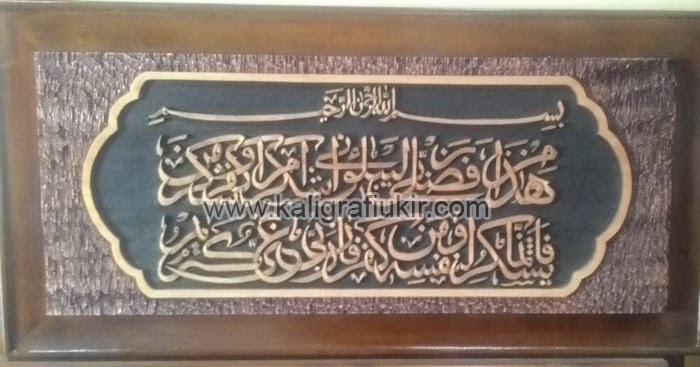 بسم الله الرحمن الرحيم
هذا من فضل ربي ليبلوني أأشكر أم أكفر ومن شكر
فإنما يشكر لنفسه ومن كفر فإن ربي غني كريم
www.kaligrafiukir.com